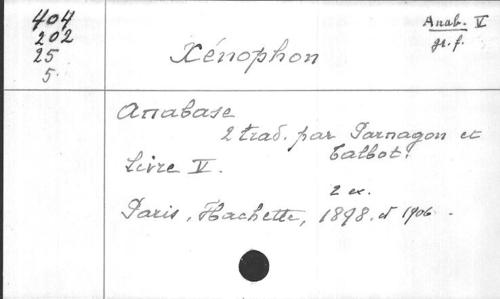 404
202
25
5
Anab. V
gr. f.
Xénophon
Anabase
2 trad. par Parnagon et
Talbot.
Livre V.
2 ex.
Paris, Hachette, 1898. et 1906.